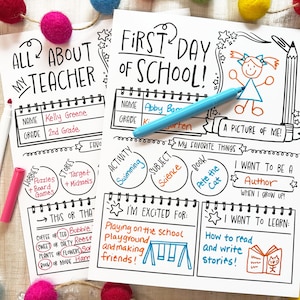 ALL ABOUT
MY TEACHER
NAME Kelly Greene
GRADE 2nd Grade
Puzzles
Board
Games
Target
+ Michaels
THIS OR THAT
FIRST DAY
OF SCHOOL!
NAME Abby
GRADE
A PICTURE OF ME!
MY FAVORITE THINGS
ACTIVITY
Swimming
SUBJECT
Science
BOOK
Pete the
Cat
I WANT TO BE A
Author
WHEN I GROW UP!
I'M EXCITED FOR:
Playing on the school
playground
and making
friends!
I WANT TO LEARN:
How to read
and write
stories!